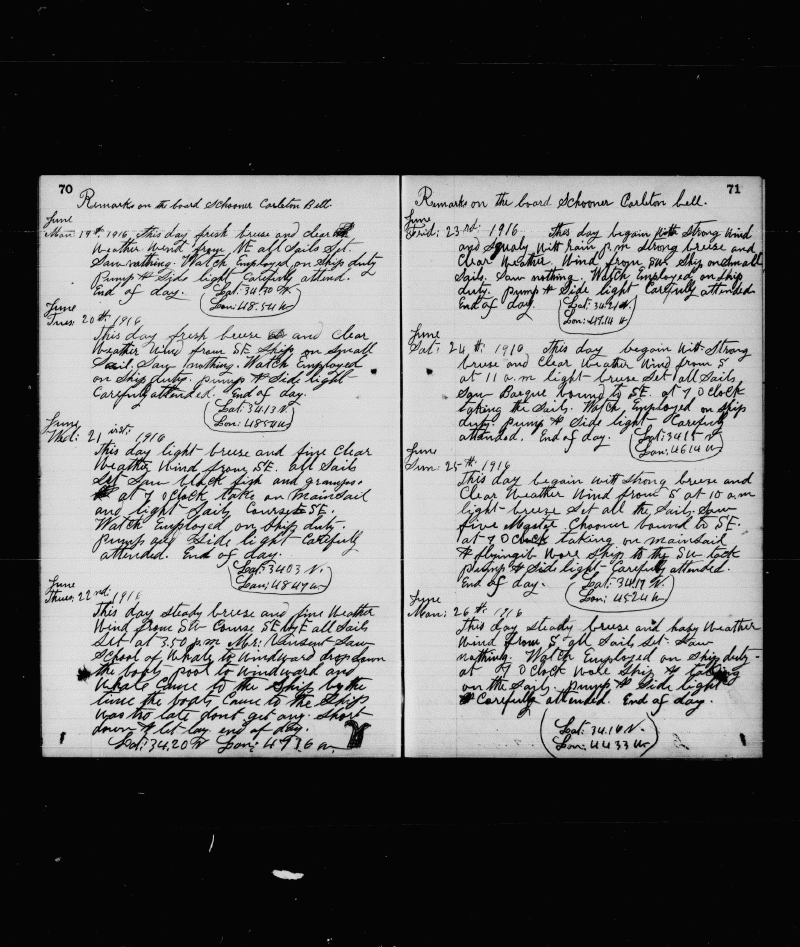 70
Remarks on the board Schooner Carleton Bell
June
Mon: 19th 1916 This day fresh breese and clear
Weather Wind from NE all Sails Set
Saw nothing. Watch Employed on Ship duty
Pump & Side light Carefuly attend.
End of day. Lat: 34.30 N
Lon: 48.54 W
June
Tues: 20th: 1916
This day fresh breese and clear
Weather Wind from SE Ship on Small
Sail. Saw nothing. Watch Employed
on Ship duty. pump & Side light
Carefuly attended. End of day.
Lat: 34.13 N.
Lon: 48.54 W
June
Wed: 21 inst: 1916
This day light breese and fine Clear
Weather Wind from SE. all Sails
Set Saw black fish and grampos.
at 7 O Clock take on Mainsail
and light Sails Course SE.
Watch Employed on Ship duty.
pump and Side light Carefuly
attended. End of day.
Lat: 34.03 N.
Lon: 48.47 W.
June
Thurs: 22nd: 1916
This day steady breese and fine Weather
Wind from SW Course SE by E all Sails
Set at 3.50 p.m Mr: Vincent Saw
School of Whale to Windward drop down
the boats pool to Windward and
Whale Came to the Ship by the
time the boats Came to the Ship
Was too late dont get any. Short
down & let lay end of day.
Lat: 34.20 N Lon: 47.36 W
71
Remarks on the board Schooner Carleton bell.
June
Frid: 23rd: 1916 This day begain With Strong Wind
and Squaly With rain p.m strong breese and
Clear Weather. Wind from SW Ship on Small
Sails. Saw nothing. Watch Employed on Ship
duty. pump & Side light Carefuly attended
End of day. Lat: 34.21 N
Lon: 47.14 W
June
Sat: 24th: 1916 This day begain With Strong
breese and Clear Weather Wind from S
at 11 a.m light breese Set all Sails,
Saw Barque bound to SE. at 7 O Clock
taking the Sails. Watch, Employed on Ship
duty. Pump & Side light Carefuly
attended. End of day. Lat: 34.15 N
Lon: 46.14 W
June
Sun: 25th: 1916
This day begain With Strong breese and
Clear Weather Wind from S at 10 a.m
light breese Set all the Sails. Saw
five Chooner bound to SE.
at 7 O Clock taking on mainsail
& flyingib Wore Ship to the SW tack
pump & Side light Carefuly attended.
End of day. Lat: 34.17 N.
Lon: 45.24 W
June
Mon: 26th: 1916
This day steady breese and hasy Weather
Wind from S all Sails Set. Saw
nothing. Watch Employed on Ship duty
at 7 O Clock Wore Ship & taking
on the Sails. pump & Side light
Carefuly attended. End of day.
Lat: 34.16 N.
Lon: 44.33 W